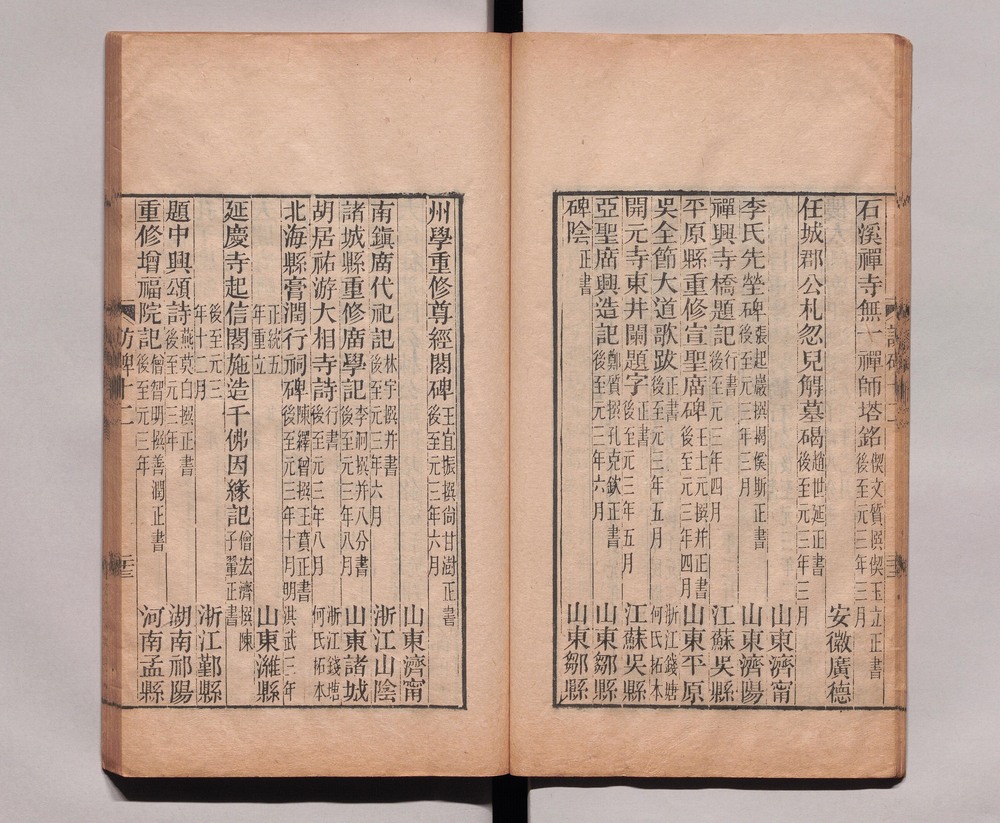 石溪禪寺無一禪師塔銘 偰文質撰偰玉立正書 後至元三年三月
安徽廣德
任城郡公札忽兒䚟墓碣 趙世延正書 後至元三年三月
山東濟甯
李氏先塋碑 張起巖撰揭傒斯正書 後至元三年三月
山東濟陽
禪興寺橋題記 行書 後至元三年四月
江蘇吳縣
平原縣重修宣聖廟碑 王士元撰并正書 後至元三年四月
山東平原
吳全節大道歌跋 正書 後至元三年五月
浙江錢塘何氏拓本
開元寺東井闌題字 正書 後至元三年五月
江蘇吳縣
亞聖廟興造記 鄭質撰孔克欽正書 後至元三年六月
山東鄒縣
碑陰 正書
山東鄒縣
州學重修尊經閣碑 王宜振撰尚甘澍正書 後至元三年六月
山東濟甯
南鎮廟代祀記 林宇撰并書 後至元三年六月
浙江山陰
諸城縣重修廟學記 李祠撰并八分書 後至元三年八月
山東諸城
胡居祐游大相寺詩 行書 後至元三年八月
浙江錢塘何氏拓本
北海縣膏潤行祠碑 陳繹曾撰王賁正書 後至元三年十月明洪武三年
正統五年重立
山東濰縣
延慶寺起信閣施造千佛因緣記 僧宏濟撰陳子翬正書
後至元三年十二月
浙江鄞縣
題中興頌詩 燕莫白撰正書 後至元三年
湖南祁陽
重修增福院記 僧智明撰善潤正書 後至元三年
河南孟縣
訪碑十二
三